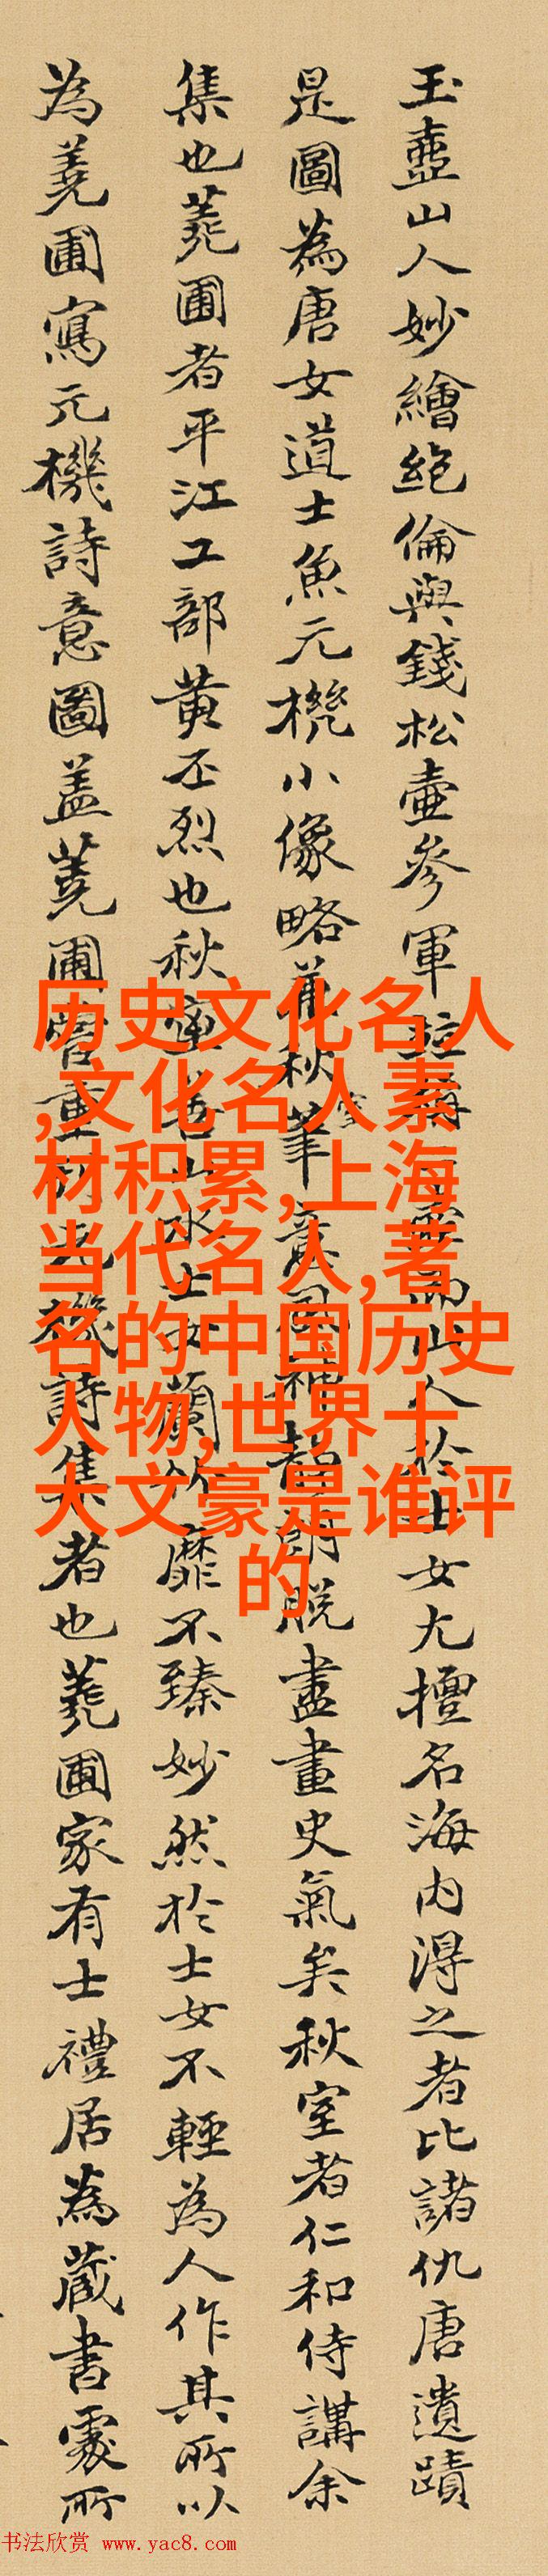 玉壺山人妙繪絶倫與錢松壺參軍稱而山人於士女尤擅名海内得之者比諸仇唐遺蹟
是圖為唐女道士魚元機小像略秋筆意風神韶朗脱盡畫史氣矣秋室者仁和侍講余
集也蕘圃者平江工部黄丕烈也秋室善山水士女蘭竹靡不臻妙然於士女不輕為人作其所以
為蕘圃寫元機詩意圖蓋蕘圃嘗重刊元機詩集者也蕘圃家有士禮居為藏書處所
历史文化名人
,文化名人素
材积累,上海
当代名人,著
名的中国历史
人物,世界十
大文豪是谁评
的
书法欣赏 www.yac8.com